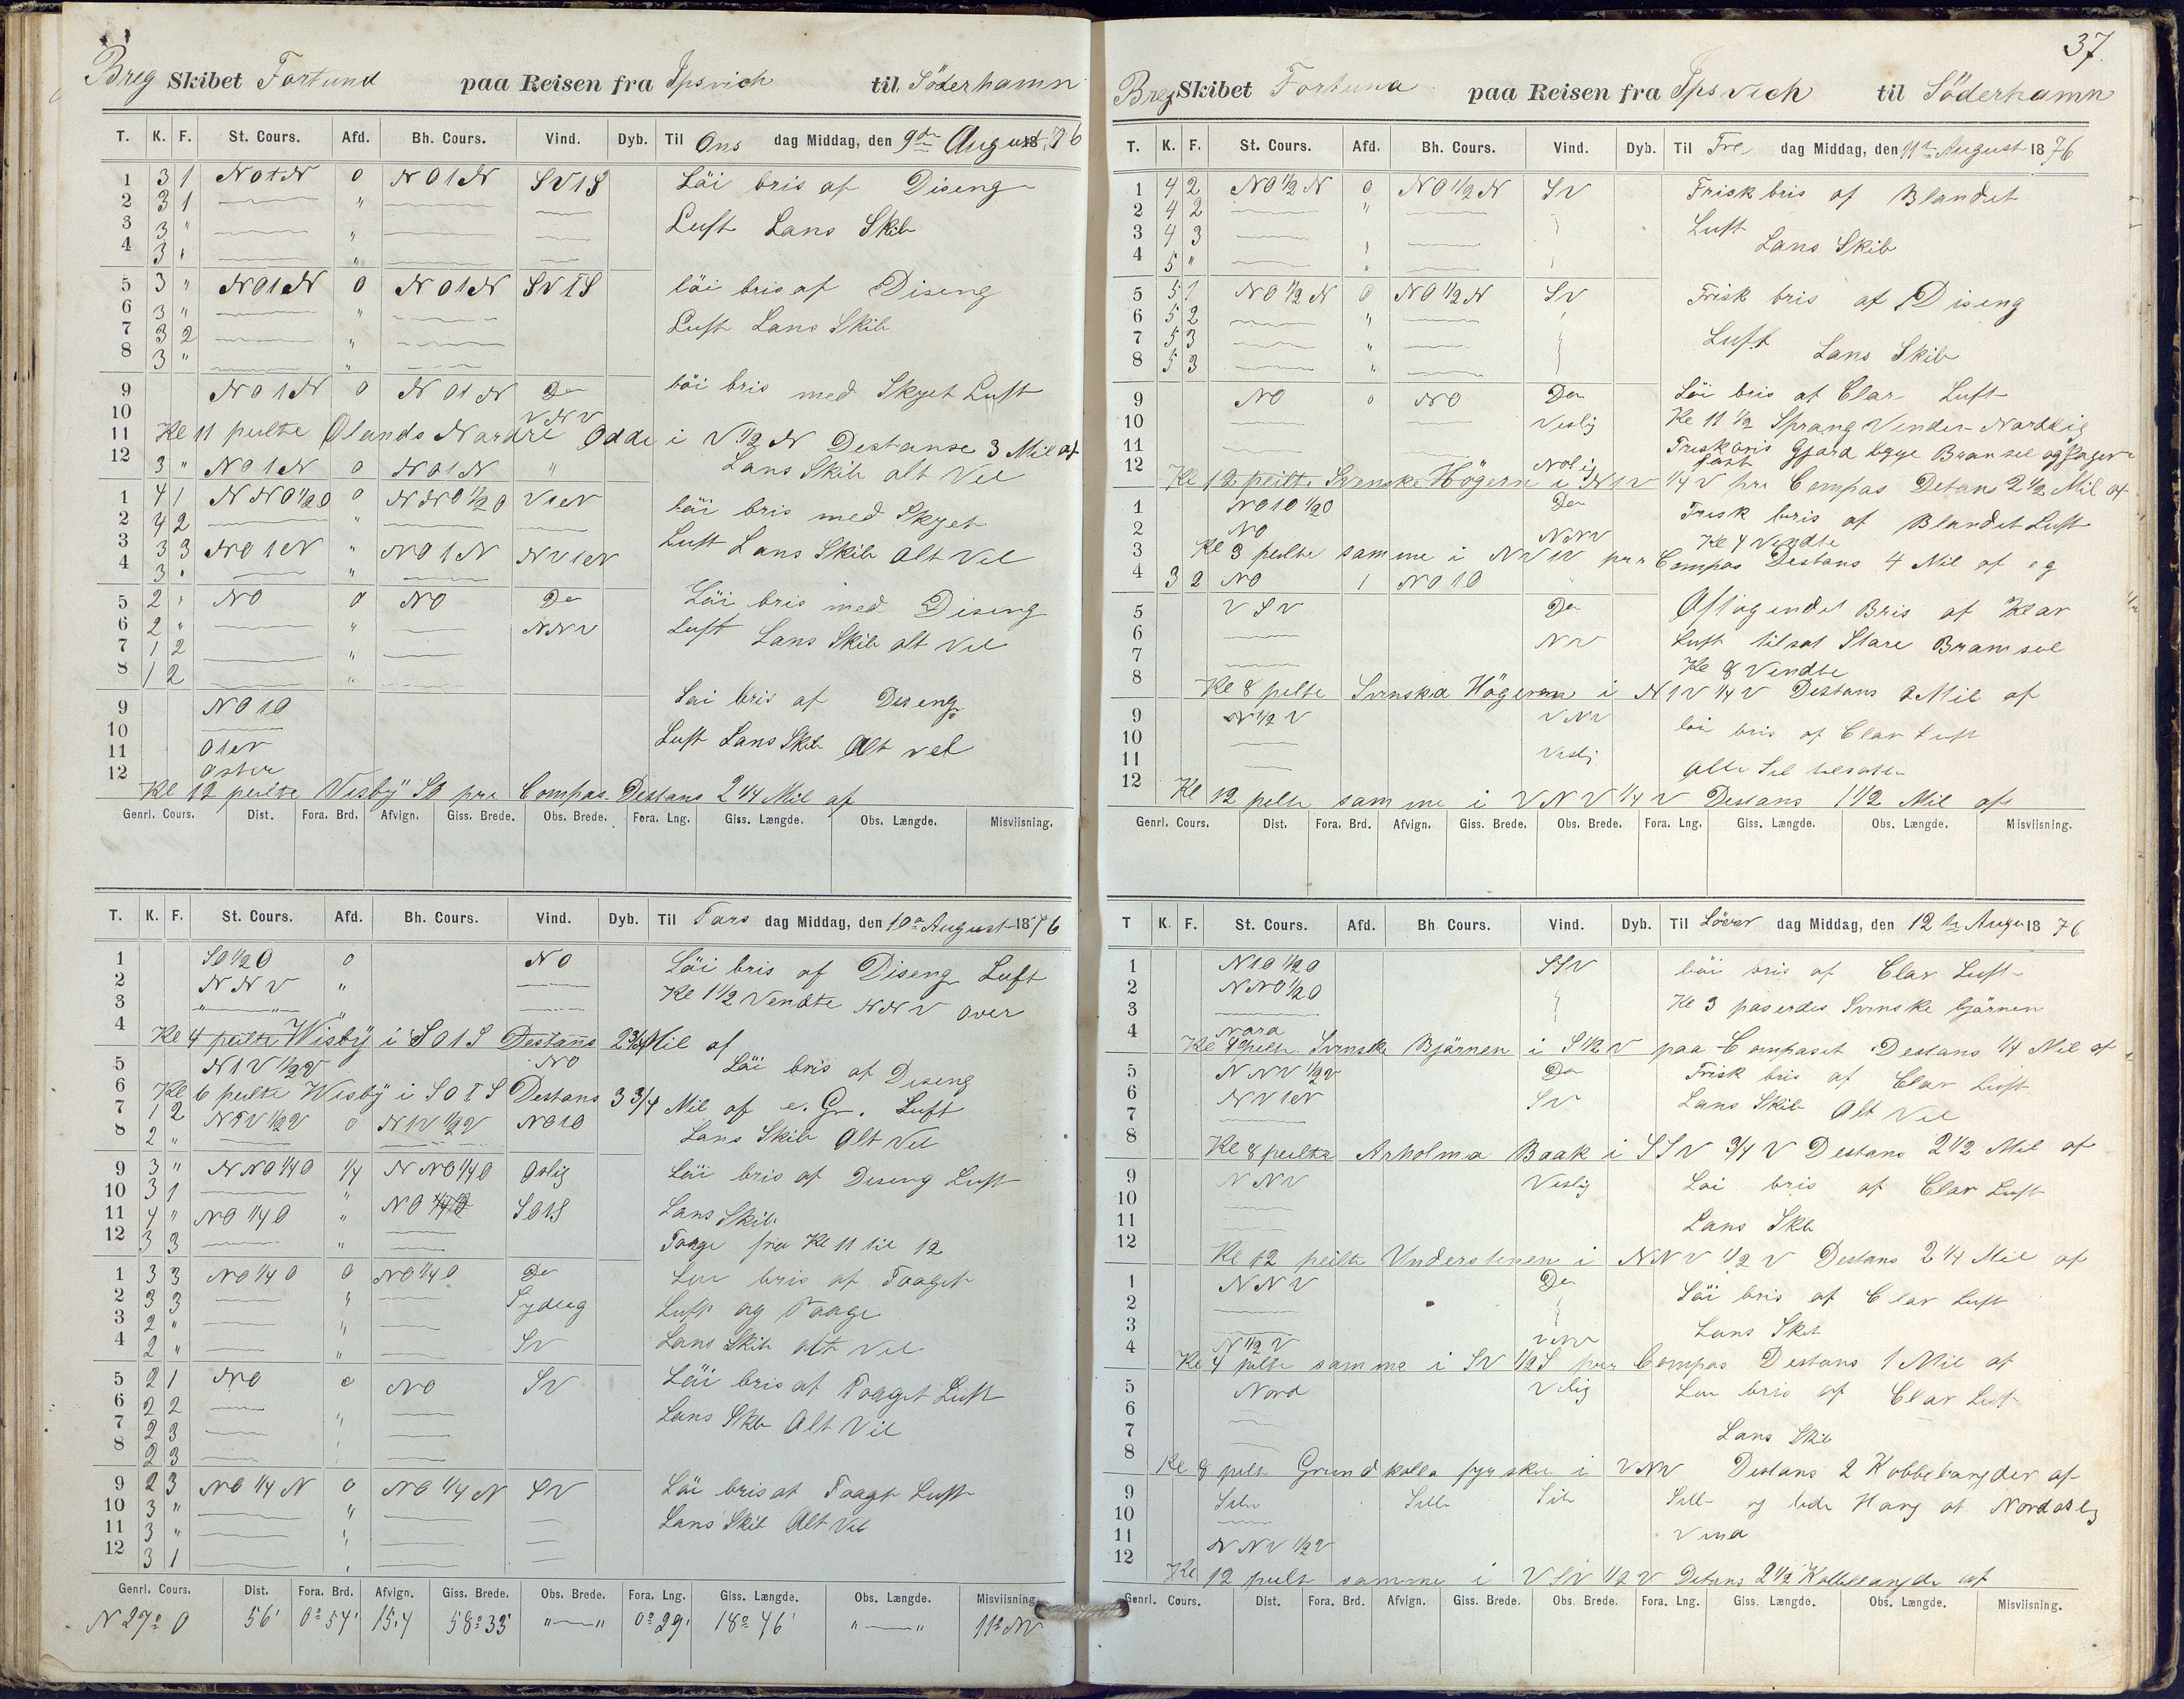 Breg Skibet Fortund paa Reisen fra Ipsvich til Söderhamn
T. K. F. St. Cours. Afd. Bh. Cours. Vind. Dyb. Til Ons dag Middag, den 9de August 1876
1 3 1 NO1N 0 NO1N SV1S Löi bris af Diseng
2 3 1 "
3 3 " " Luft Lans Skib
4 3 " "
5 3 " NO1N 0 NO1N SV1S löi bris af Diseng
6 3 " "
7 3 2 " Luft Lans Skib
8 3 " "
9 NO1N 0 NO1N Do löi bris med Skyet Luft
10 VNV
11 Kl 11 peilte Ølands Nordre Odde i V 1/2 N Destanse 3 Mil af
12 3 " NO1N 0 NO1N " Lans Skib alt Vel
1 4 1 NNO 1/2 O 0 NNO 1/2 O V1N löi bris med Skyet
2 4 2 "
3 3 3 NO1N " NO1N NV1N Luft Lans Skib alt Vel
4 3 " "
5 2 " NO 0 NO Do Löi bris med Diseng
6 2 " " NNV Luft Lans Skib alt Vel
7 1 2 "
8 1 2 "
9 NO1O Löi bris af Diseng
10
11 O1N Luft Lans Skib Alt vel
12 Oster
Kl 12 peilte Visby SO pr Compas Destans 2 1/4 Mil af
Genrl. Cours. Dist. Fora. Brd. Afvign. Giss. Brede. Obs. Brede. Fora. Lng. Giss. Længde. Obs. Længde. Misviisning.
T. K. F. St. Cours. Afd. Bh. Cours. Vind. Dyb. Til Tors dag Middag, den 10de August 1876
1 SO 1/2 O 0 NO Löi bris af Diseng Luft
2 NNV " Kl 1 1/2 Vendte NNV over
3 " " "
4 Kl 4 peilte Wisby i SO1S Destans 2 3/4 Mil af
5 N1V 1/2 V NO Löi bris af Diseng
6 Kl 6 peilte Wisby i SO1S Destans 3 3/4 Mil af e. Gr. Luft
7 1 2 N1V 1/2 V 0 N1V 1/2 V NO1O
8 2 " Lans Skib Alt Vel
9 3 " NNO 1/4 O 1/4 NNO 1/4 O Oslig Löi bris af Diseng Luft
10 3 1 "
11 4 " NO 1/4 O " NO 1/4 O SO1S Lans Skib
12 3 3 " Taage fra Kl 11 til 12
1 3 3 NO 1/4 O 0 NO 1/4 O Do Löi bris af Taaget
2 3 3 " Sydlig Luft og Taage
3 2 " "
4 2 " " SV Lans Skib alt Vel
5 2 1 NO 0 NO SV Löi bris af Taaget Luft
6 2 2
7 2 3 " Lans Skib Alt Vel
8 2 3
9 2 3 NO 1/4 N 0 NO 1/4 N SV Löi bris af Taaget Luft
10 3 " "
11 3 " " Lans Skib Alt Vel
12 3 1 "
Genrl. Cours. Dist. Fora. Brd. Afvign. Giss. Brede. Obs. Brede. Fora. Lng. Giss. Længde. Obs. Længde. Misviisning.
N 27° O 56' 0° 54' 15,4 58° 35' "—" 0° 29' 18° 46' "—" 11° NV
37.
Breg Skibet Fortuna paa Reisen fra Ipsvich til Söderhamn
T. K. F. St. Cours. Afd. Bh. Cours. Vind. Dyb. Til Fre dag Middag, den 11te August 1876
1 4 2 NO 1/2 N 0 NO 1/2 N SV Frisk bris af Blandet
2 4 2 "
3 4 3 Luft
4 5 " " Lans Skib
5 5 1 NO 1/2 N 0 NO 1/2 N SV Frisk bris af Diseng
6 5 2 "
7 5 3 " Luft
8 5 3 " Lans Skib
9 NO 0 NO Do Löi bris af Clar Luft
10 Veslig Kl 11 1/2 Sprang Vinden Nordlig
11 Frisk bris Gjord Bygge Bramseil og Jager fast
12 Kl 12 peilte Svenske Högern i N1V 1/4 V pr Compas Detans 2 1/2 Mil af
1 NO1O 1/2 O Do Frisk bris af Blandet Luft
2 NO NNV Kl 4 Vendte
3 Kl 3 peilte samme i NV1V pr Compas Destans 4 Mil af eg
4 3 2 NO 1 NO1O
5 VSV Do Aftagendet Bris af Klar
6 NV Luft tilsat Stare Bramseil
7 Kl 8 Vendte
8 Kl 8 pelte Svenska Högeren i N1V 1/4 V Destans 2 Mil af
9 N 1/2 V VNV löi bris af Clar Luft
10
11 Veslig Alle Seil tilsat
12 Kl 12 pelte samme i VNV 1/4 V Destans 1 1/2 Mil af
Genrl. Cours. Dist. Fora. Brd. Afvign. Giss. Brede. Obs. Brede. Fora. Lng. Giss. Længde. Obs. Længde. Misviisning.
T K. F. St. Cours. Afd. Bh Cours. Vind. Dyb. Til Löver dag Middag, den 12te Augu 1876
1 N1O 1/2 O SSV löi bris af Clar Luft
2 NNO 1/2 O
3 Kl 3 paserdes Svenske björnen
4 Nord
Kl 4 peilte Svenske Bjärnen i S 1/2 V paa Compaset Destans 1/4 Mil af
5 NNV 1/2 V Do Frisk bris af Clar Luft
6 NV1N SV Lans Skib Alt Vel
7
8 Kl 8 peilte Arholma Baak i SSV 3/4 V Destans 2 1/2 Mil af
9 NNV Veslig Löi bris af Clar Luft
10
11 Lans Skib
12 Kl 12 peilte Understenen i NNV 1/2 V Destans 2 1/4 Mil af
1 NNV Do Löi bris af Clar Luft
2
3 Lans Skib
4 N 1/2 V VNV
Kl 4 pelte samme i SV 1/2 S pr Compas Destans 1 Mil af
5 Nord Veslig Löi bris af Clar Luft
6
7 Lans Skib
8 Kl 8 pelte Grundkalla fyrskib i VNV Destans 2 Kabbelængder af
9 Stille Stille Stille Still og lede Hang af Nordoslig
10
11 NNV 1/2 V Vind
12 Kl 12 peilt samme i VSV 1/2 V Detans 2 1/2 Kabbellængde af
Genrl. Cours. Dist. Fora. Brd. Afvign. Giss. Brede. Obs. Brede. Fora. Lng. Giss. Længde. Obs. Længde. Misviisning.